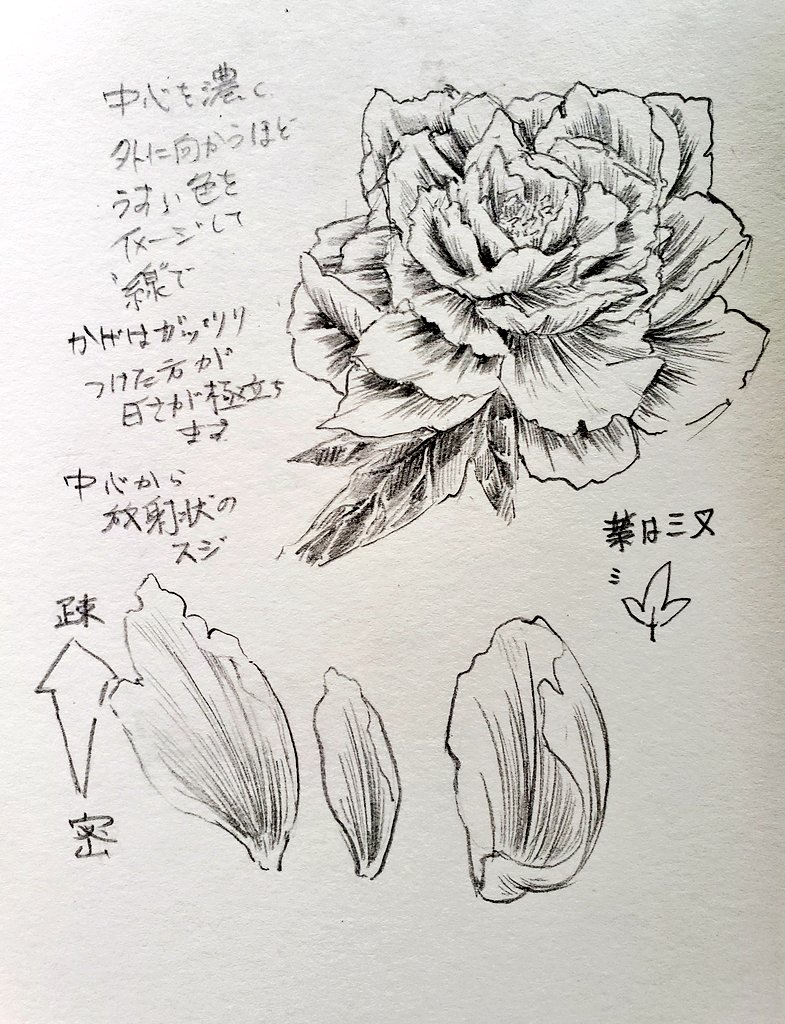 中心を濃く
外に向かうほど
うすい色を
イメージして
"線"で
かげはガッツリ
つけた方が
白さが極立ち
ます
中心から
放射状の
スジ
葉は三又
疎
密